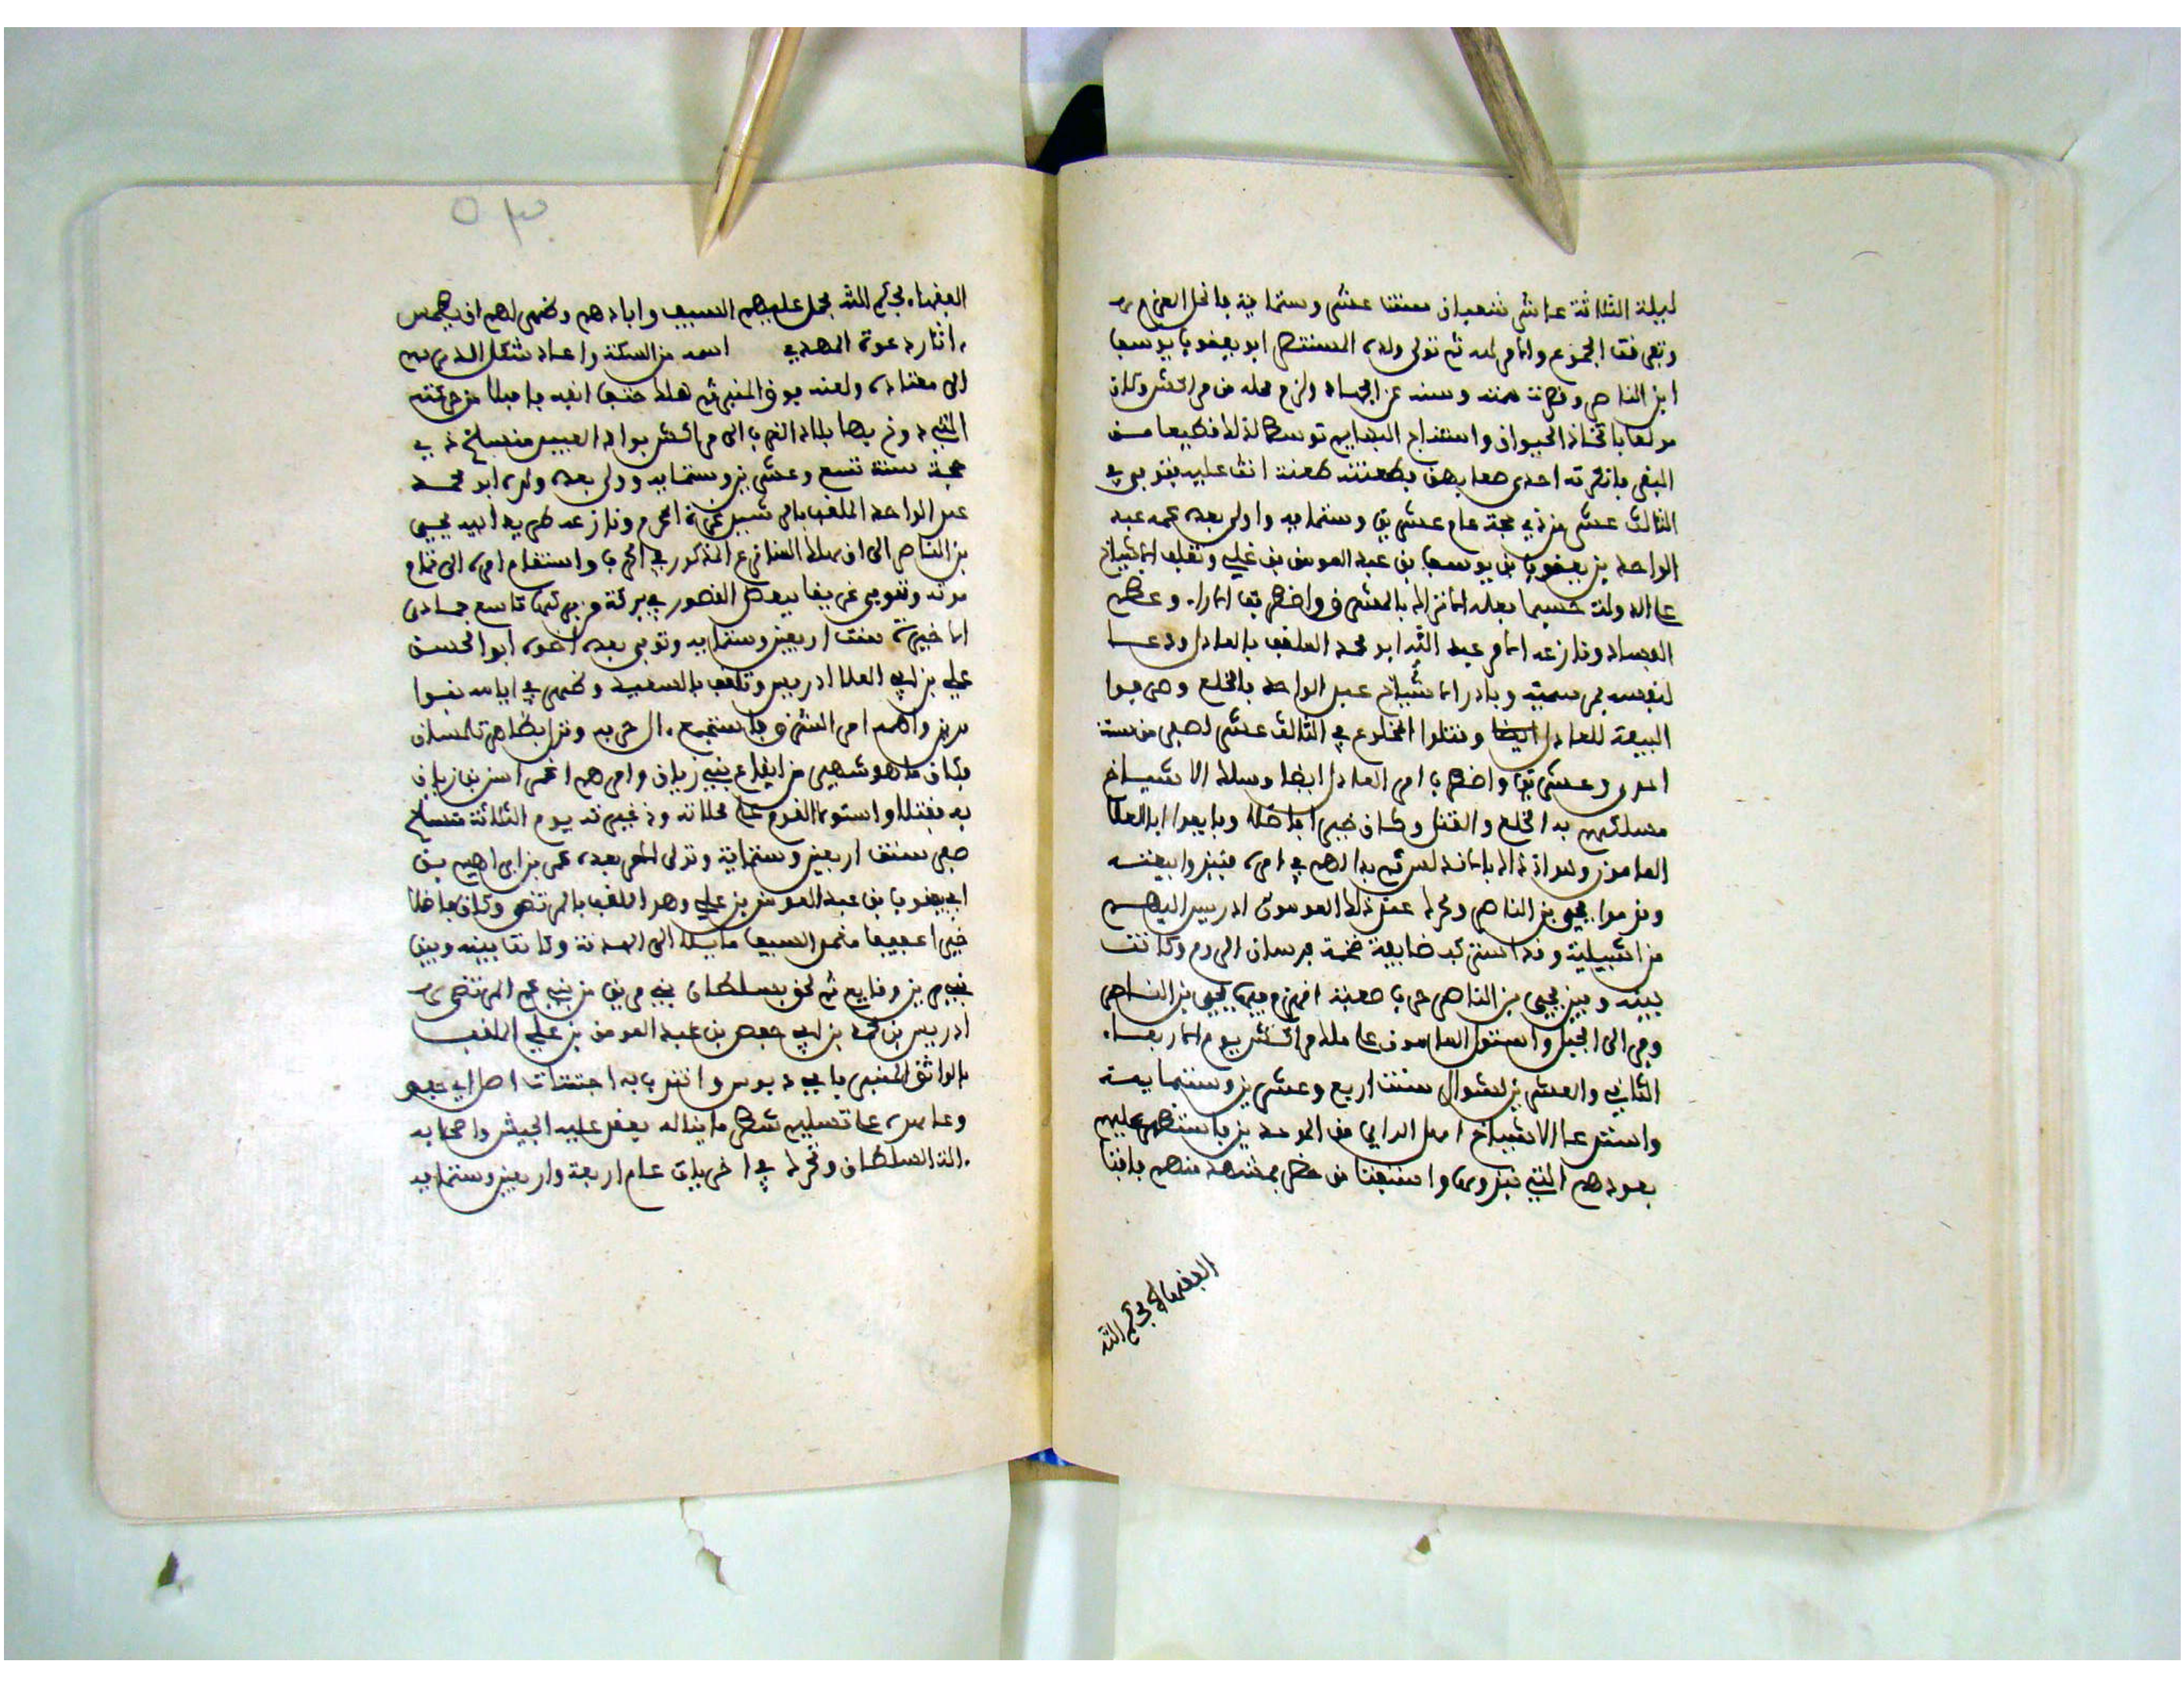 ليلة الثلاثة عاشر شعبان سنة عشر وستماية فانحل العزم
وتفرقت الجموع والامر لله ثم تولى ولده المستنصر ابو يعقوب يوسف
ابن الناصر وقصرت همته وسنه عن الجهاد ولزم محله من مراكش وكان
مولعا باتخاذ الحيوان واستنتاج البهايم توسط لذلك قطيعا من
البقر فانكرته احدى صعابهن فطعنته طعنة اتت عليه فتوفي في
الثالث عشر من ذي حجة عام عشرين وستمايه وولي بعده عمه عبد
الواحد بن يعقوب بن يوسف بن عبد المومن بن علي وتغلب الاشياخ
على الدولة حسبما فعله الاتراك بالمشرق واضطربت الاراء وعظم
الفساد ونازعه الامر عبد الله ابو محمد الملقب بالعادل ودعا
لنفسه بمرسية وبادر الاشياخ عبد الواحد بالخلع وصرفوا
البيعة للعادل ايضا وقتلوا المخلوع في الثالث عشر لصفر من سنة
احدى وعشرين واضطرب امر العادل ايضا وسلك الاشياخ
مسلكهم به الخلع والقتل وكان خيرا فاضلا وبايعوا ابا العلا
المامون وهو اذ ذاك بالاندلس ثم بدا لهم في امره فنبذوا بيعته
وبايعوا يحيى بن الناصر وتحرك عند ذلك المومون ادريس اليهم
من اشبيلية وقد استركب ضايعة ضخمة فرسان الروم وكانت
بينه وبين يحيى بن الناصر حرب صعبة انهزم فيها يحيى بن الناصر
وفر الى الجبل واستولى المامون على ملك مراكش يوم الاربعاء
الثاني والعشرين لشوال سنة اربع وعشرين وستماية
واستدعا الاشياخ اهل الراي من الموحدين فاستظهر عليهم
بعودهم التي نبذوها واستفتا من حضر بمشهد منهم فافتا
الفقهاء بحكم الله
الفقهاء بحكم الله فحمل عليهم السيف وابادهم وظهر لهم ان يطمس
اثار دعوة المهدي اسمه من السكة واعاد شكل الدرهم
الى معتاده ولعنه فوق المنبر ثم هلك حتف انفه قافلا من حركته
التي دوخ بها بلاد الغرب الى مراكش بوادي العبيد منسلخ ذي
حجة سنة تسع وعشرين وستمايه وولي بعده ولده ابو محمد
عبد الواحد الملقب بالرشيد غرة المحرم ونازعه طريد ابيه يحيى
بن الناصر الى ان هلك المنازع المذكور في الحرب واستقام امره الى تمام
موته وتوفي غريقا ببعض القصور في بركة من بركها تاسع جمادى
الاخيرة سنة اربعين وستمايه وتولى بعده اخوه ابو الحسن
علي بن ابي العلا ادريس وتلقب بالسعيد وظهر في ايامه بنوا
مرين واهمه امر الشرق فاستجمع الحربه ونزل بظاهر تلمسان
فكان ما هو شهير من ايقاع بني زيان وامرهم يغمراسن بن زيان
به فقتل واستولى القوم على محلاته وذخيرته يوم الثلاثة منسلخ
صفر سنة اربعين وستماية وتولى الامر بعده عمر بن ابراهيم بن
ابي يعقوب بن عبد المومن بن علي وهو الملقب بالمرتضى وكان فاضلا
خيرا عفيفا مغمد السيف مايلا الى الهدنة وكانت بينه وبين
بني مرين وقايع ثم لحق بسلطان بني مرين من بني عم المرتضى
ادريس بن محمد بن ابي حفص بن عبد المومن بن علي الملقب
بالواثق المنبز بابي دبوس وانتدب به اجتثاث اصل
وعاهده على تسليم شطر ما يناله يعقد عليه الجيش واصحابه
الة السلطان وتحرك في اخريات عام اربعة واربعين وستمايه